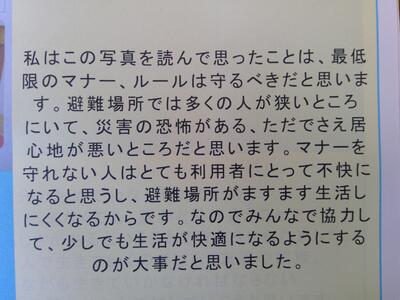 私はこの写真を読んで思ったことは、最低
限のマナー、ルールは守るべきだと思いま
す。避難場所では多くの人が狭いところ
にいて、災害の恐怖がある、ただでさえ居
心地が悪いところだと思います。マナーを
守れない人はとても利用者にとって不快に
なると思うし、避難場所がますます生活し
にくくなるからです。なのでみんなで協力し
て、少しでも生活が快適になるようにする
のが大事だと思いました。